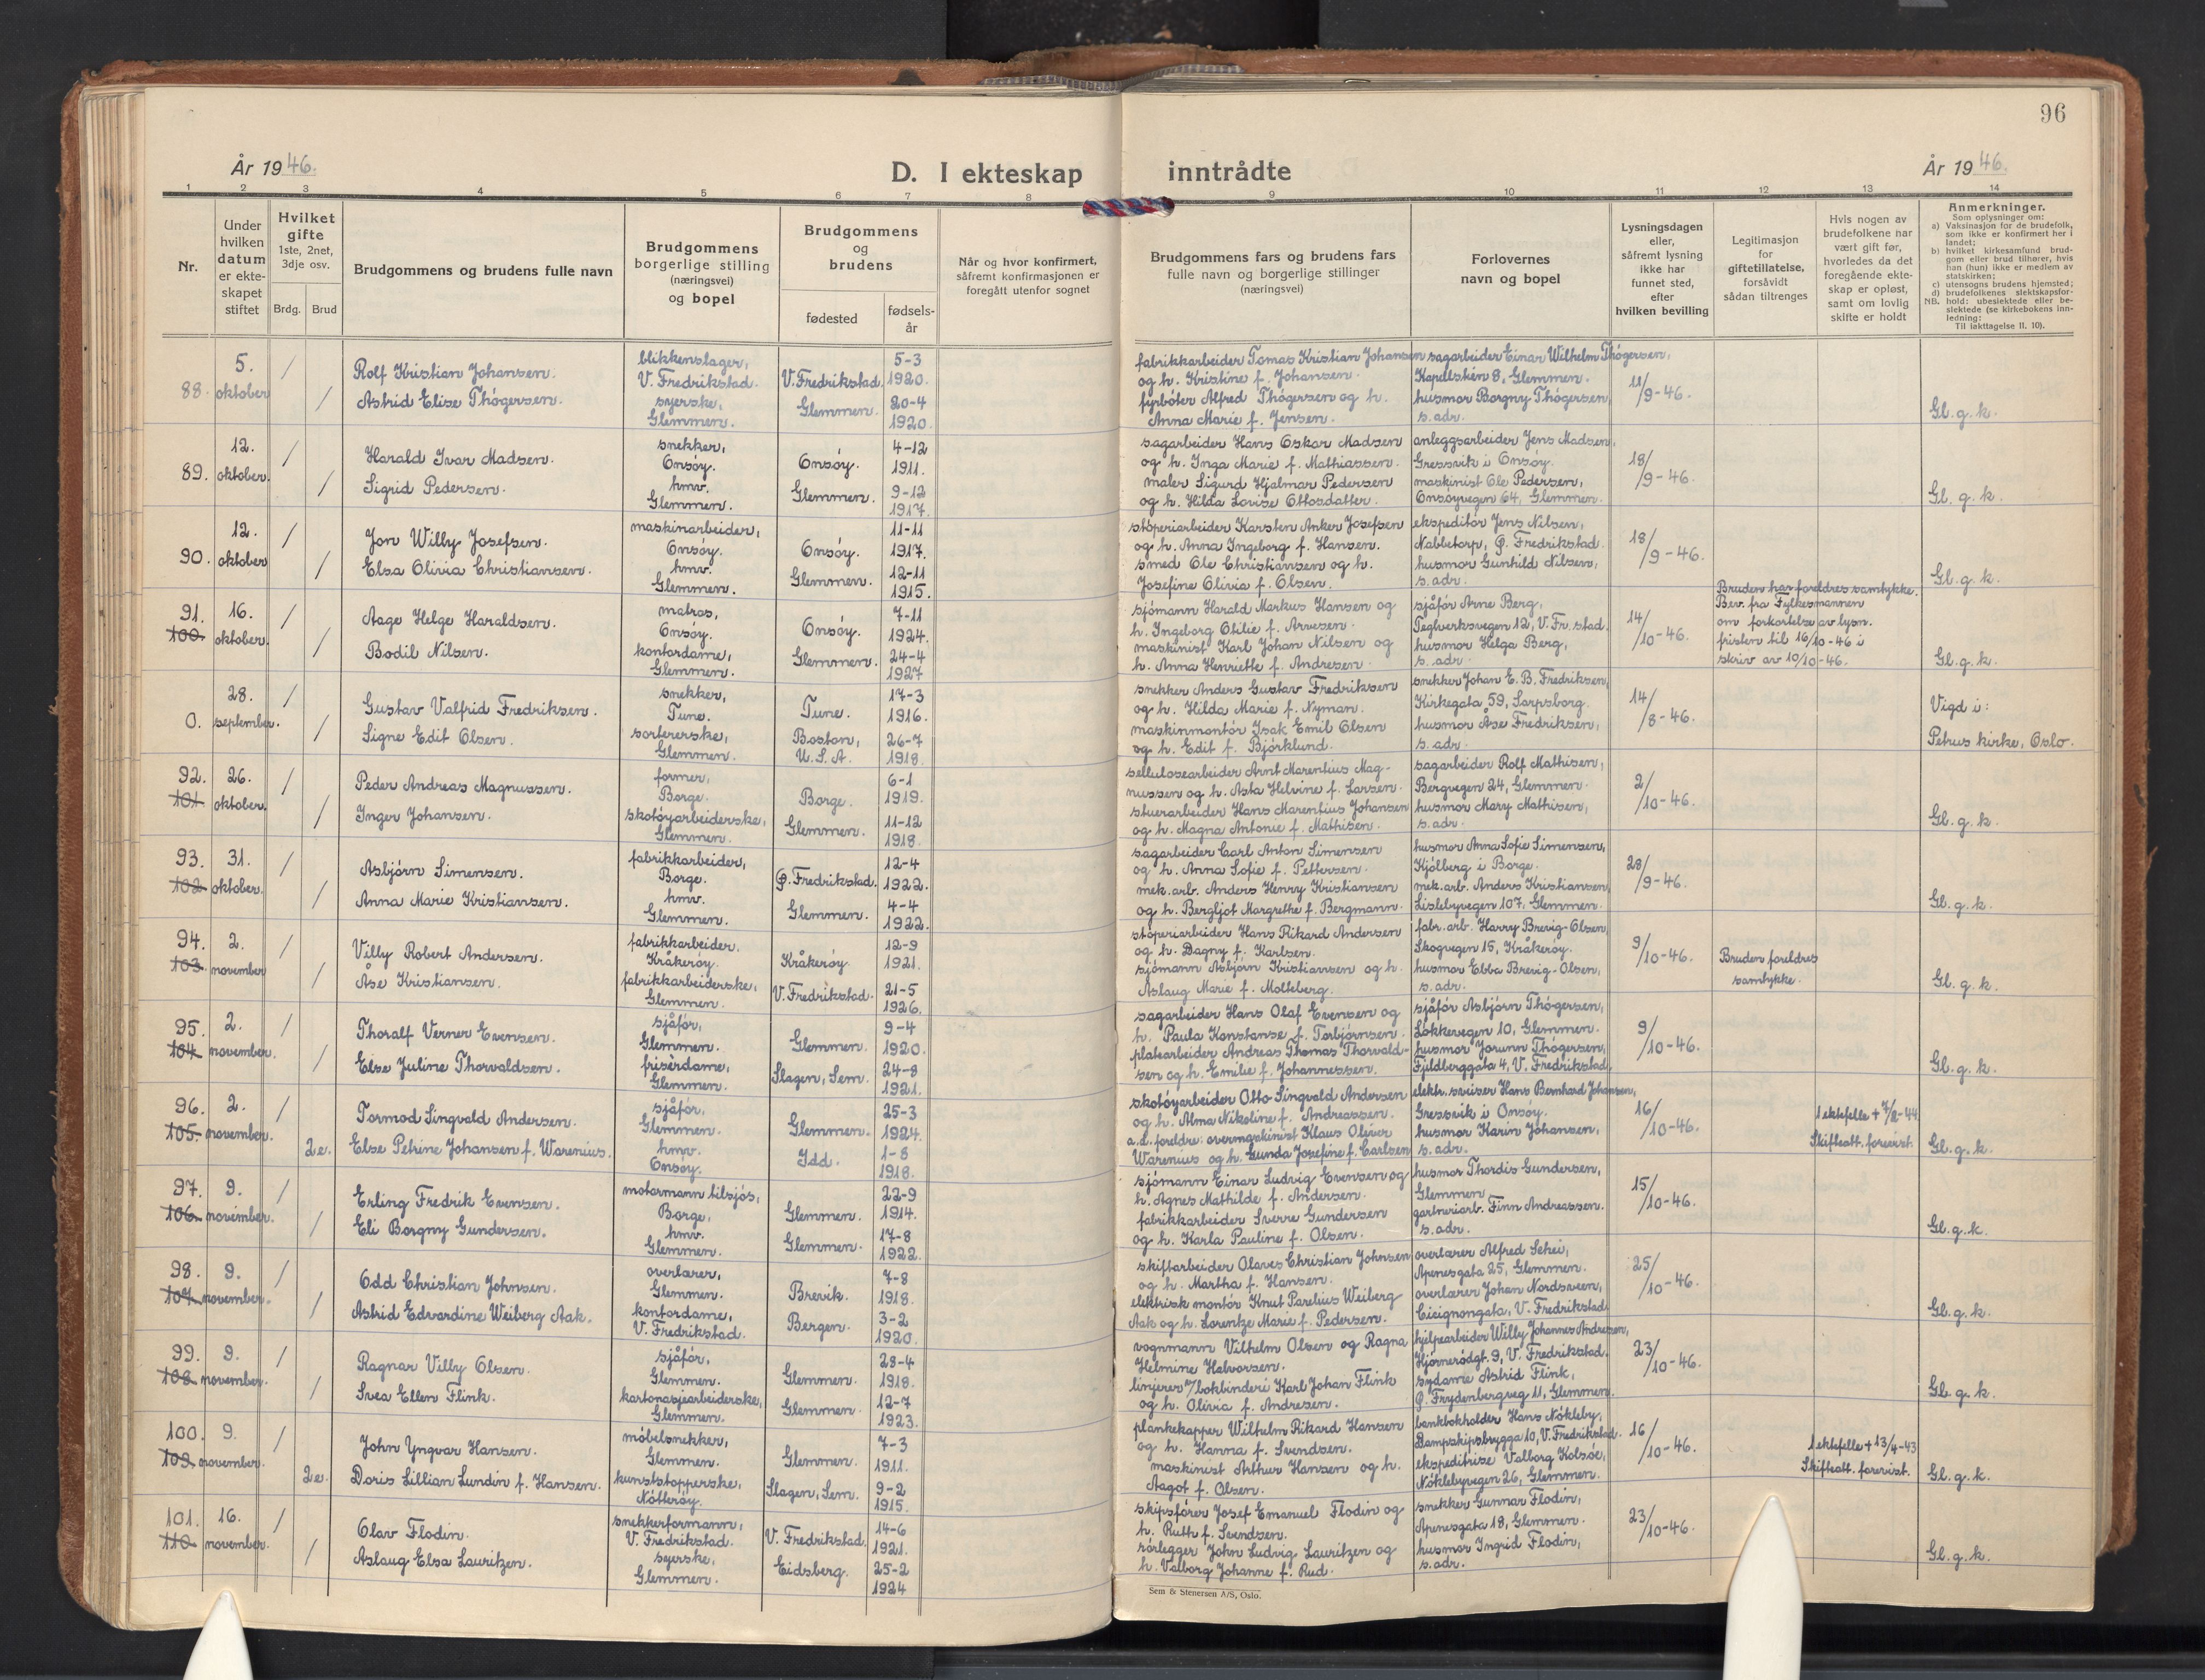 96
År 1946.
D. I ekteskap inntrådte
År 1946.
1 2 3 4 5 6 7 8 9 10 11 12 13 14
Nr.
Under hvilken datum er ekteskapet stiftet
Hvilket gifte 1ste, 2net, 3dje osv.
Brdg. Brud
Brudgommens og brudens fulle navn
Brudgommens borgerlige stilling (næringsvei) og bopel
Brudgommens og brudens
fødested
fødselsår
Når og hvor konfirmert, såfremt konfirmasjonen er foregått utenfor sognet
Brudgommens fars og brudens fars fulle navn og borgerlige stillinger (næringsvei)
Forlovernes navn og bopel
Lysningsdagen eller, såfremt lysning ikke har funnet sted, efter hvilken bevilling
Legitimasjon for giftetillatelse, forsåvidt sådan tiltrenges
Hvis nogen av brudefolkene har vært gift før, hvorledes da det foregående ekteskap er opløst, samt om lovlig skifte er holdt
Anmerkninger.
Som oplysninger om:
a) Vaksinasjon for de brudefolk, som ikke er konfirmert her i landet;
b) hvilket kirkesamfund brudgom eller brud tilhører, hvis han (hun) ikke er medlem av statskirken;
c) utensogns brudens hjemsted;
d) brudefolkenes slektskapsforhold: ubeslektede eller beslektede (se kirkebokens innledning:
NB.
Til iakttagelse II. 10).
88. 5. oktober / /
Rolf Kristian Johansen.
Astrid Elise Thøgersen.
blikkenslager, V. Fredrikstad.
syerske, Glemmen.
V. Fredrikstad. 5-3 1920.
Glemmen. 20-4 1920.
fabrikkarbeider Tomas Kristian Johansen
og h. Kristine f. Johansen.
fyrbøter Alfred Thøgersen og h.
Anna Marie f. Jensen.
sagarbeider Einar Wilhelm Thøgersen,
Kapellskén 8, Glemmen.
husmor Borgny Thøgersen,
s. adr.
11/9-46.
Gl. g. k.
89. 12. oktober. / /
Harald Ivar Madsen.
Sigrid Pedersen.
snekker, Onsøy.
hmv. Glemmen.
Onsøy. 4-12 1911.
Glemmen. 9-12 1917.
sagarbeider Hans Oskar Madsen
og h. Inga Marie f. Mathiassen.
maler Sigurd Hjalmar Pedersen
og h. Hilda Lovise Ottosdatter.
anleggsarbeider Jens Madsen,
Gressvik i Onsøy.
maskinist Ole Pedersen,
Onsøyvegen 64, Glemmen.
18/9-46.
Gl. g. k.
90. 12. oktober / /
Jon Willy Josefsen.
Elsa Olivia Christiansen.
maskinarbeider, Onsøy.
hmv. Glemmen.
Onsøy. 11-11 1917.
Glemmen. 12-11 1915.
støperiarbeider Karsten Anker Josefsen
og h. Anna Ingeborg f. Hansen.
smed Ole Christiansen og h.
Josefine Olivia f. Olsen.
ekspeditør Jens Nilsen,
Nabbetorp, Ø. Fredrikstad.
husmor Gunhild Nilsen,
s. adr.
18/9-46.
Gl. g. k.
91. 100. 16. oktober. / /
Aage Helge Haraldsen.
Bodil Nilsen.
matros, Onsøy.
kontordame, Glemmen.
Onsøy. 7-11 1924.
Glemmen. 24-4 1927
sjømann Harald Markus Hansen og
h. Ingeborg Otilie f. Arvesen.
maskinist Karl Johan Nilsen og
h. Anna Henriette f. Andresen.
sjåfør Arne Berg,
Teglverksvegen 12, V. Fr. stad.
husmor Helga Berg,
s. adr.
14/10-46.
Bruden har foreldres samtykke.
Bev. fra Fylkesmannen
om forkortelse av lysn.
fristen til 16/10-46 i
skriv av 10/10-46.
Gl. g. k.
0. 28. september. / /
Gustav Valfrid Fredriksen.
Signe Edit Olsen.
snekker, Tune.
sortererske, Glemmen.
Tune. 17-3 1916.
Boston, U.S.A. 26-7 1918.
snekker Anders Gustav Fredriksen
og h. Hilda Marie f. Nyman.
maskinmontør Isak Emil Olsen
og h. Edit f. Bjørklund.
snekker Johan E. B. Fredriksen,
Kirkegata 59, Sarpsborg.
husmor Åse Fredriksen,
s. adr.
14/8-46.
Vigd i:
Petrus kirke, Oslo.
92. 101. 26. oktober. / /
Peder Andreas Magnussen.
Inger Johansen.
former, Borge.
skotøyarbeiderske, Glemmen.
Borge. 6-1 1919.
Glemmen. 11-12 1918.
sellulosearbeider Arnt Marentius Mag-
nussen og h. Asta Helvine f. Larsen.
stuerarbeider Hans Marentius Johansen
og h. Magna Antonie f. Mathisen.
sagarbeider Rolf Mathisen,
Bergvegen 24, Glemmen.
husmor Mary Mathisen,
s. adr.
2/10-46.
Gl. g. k.
93. 102. 31. oktober. / /
Asbjørn Simensen.
Anna Marie Kristiansen.
fabrikkarbeider, Borge.
hmv. Glemmen.
Ø. Fredrikstad. 12-4 1922.
Glemmen. 4-4 1922.
sagarbeider Carl Anton Simensen
og h. Anna Sofie f. Pettersen.
mek. arb. Anders Henry Kristiansen
og h. Bergljot Margrethe f. Bergmann.
husmor Anna Sofie Simensen,
Kjølberg i Borge.
mek. arb. Anders Kristiansen,
Lislebyvegen 107, Glemmen.
28/9-46.
Gl. g. k.
94. 103. 2. november / /
Villy Robert Andersen.
Åse Kristiansen.
fabrikkarbeider. Kråkerøy.
fabrikkarbeiderske, Glemmen.
Kråkerøy. 12-9 1921.
V. Fredrikstad. 21-5 1926.
støperiarbeider Hans Rikard Andersen
og h. Dagny f. Karlsen.
sjømann Asbjørn Kristiansen og h.
Aslaug Marie f. Molteberg.
fabr. arb. Harry Brevig-Olsen,
Skogvegen 15, Kråkerøy.
husmor Ebba Brevig-Olsen,
s. adr.
9/10-46.
Bruden foreldres
samtykke.
Gl. g. k.
95. 104. 2. november. / /
Thoralf Verner Evensen.
Else Juline Thorvaldsen.
sjåfør, Glemmen.
frisérdame, Glemmen.
Glemmen. 9-4 1920.
Slagen, Sem. 24-8 1921.
sagarbeider Hans Olaf Evensen og
h. Paula Konstanse f. Torbjørnsen.
platearbeider Andreas Thomas Thorvald-
sen og h. Emilie f. Johannessen.
sjåfør Asbjørn Thøgersen,
Løkkevegen 10, Glemmen.
husmor Jorunn Thøgersen,
Fjeldberggata 4, V. Fredrikstad.
9/10-46.
Gl. g. k.
96. 105. 2. november. / 2e.
Tormod Singvald Andersen.
Else Petrine Johansen f. Warenius.
sjåfør, Glemmen.
hmv. Onsøy.
Glemmen. 25-3 1924.
Idd. 1-8 1918.
skotøyarbeider Otto Singvald Andersen
og h. Alma Nikoline f. Andreassen.
a.d. foreldre: overmaskinist Klaus Oliver
Warenius og h. Gunda Josefine f. Carlsen
elektr. sveiser Hans Bernhard Johansen,
Gressvik i Onsøy.
husmor Karin Johansen,
s. adr.
16/10-46.
1 ektefelle + 7/2-44
Skifteatt. forevist.
Gl. g. k.
97. 106. 9. november. / /
Erling Fredrik Evensen.
Eli Borgny Gundersen.
motormann tilsjøs, Borge.
hmv. Glemmen.
Glemmen. 22-9 1914.
Glemmen. 17-8 1922.
sjømann Einar Ludvig Evensen og
h. Agnes Mathilde f. Andersen.
fabrikkarbeider Sverre Gundersen
og h. Karla Pauline f. Olsen.
husmor Thordis Gundersen,
Glemmen
gartneriarb. Finn Andreassen.
s. adr.
15/10-46.
Gl. g. k.
98. 107. 9. november. / /
Odd Christian Johnsen.
Astrid Edvardine Weiberg Aak.
overlærer, Glemmen.
kontordame, V. Fredrikstad.
Brevik. 7-8 1918.
Bergen. 3-2 1920.
skiftarbeider Olaves Christian Johnsen
og h. Martha f. Hansen.
elektrisk montør Knut Parelius Weiberg
Aak og h. Lorentze Marie f. Pedersen.
overlærer Alfred Schei,
Apenesgata 25, Glemmen.
overlærer Johan Nordsveen,
Cicignongata, V. Fredrikstad.
25/10-46.
Gl. g. k.
99. 108. 9. november. / /
Ragnar Villy Olsen.
Svea Ellen Flink.
sjåfør, Glemmen.
kartonasjearbeiderske, Glemmen.
Glemmen. 28-4 1918.
Glemmen. 12-7 1923.
vognmann Vilhelm Olsen og Ragna
Helmine Halvorsen.
linjerer v/bokbinderi Karl Johan Flink
og h. Olivia f. Andresen.
hjelpearbeider Willy Johannes Andresen,
Hjørnerødgt. 9, V. Fredrikstad.
sydame Astrid Flink,
Ø. Frydenbergveg 11, Glemmen.
23/10-46.
Gl. g. k.
100. 109. 9. november. / 2e.
John Yngvar Hansen.
Doris Lillian Lundin f. Hansen.
møbelsnekker, Glemmen.
kunststopperske, Nøtterøy.
Glemmen. 7-3 1911.
Slagen, Sem. 9-2 1915.
plankekapper Wilhelm Rikard Hansen
og h. Hanna f. Svendsen.
maskinist Arthur Hansen og h.
Aagot f. Olsen.
bankbokholder Hans Nøkleby,
Dampskipsbrygga 10, V. Fredrikstad.
ekspeditrise Valborg Kolsøe,
Nøklebyvegen 26, Glemmen.
16/10-46.
1 ektefelle + 13/4-43
Skifteatt. forevist.
Gl. g. k.
101. 110. 16. november. / /
Olav Flodin.
Aslaug Elsa Lauritzen.
snekkerformann, V. Fredrikstad.
syerske, Glemmen.
V. Fredrikstad. 14-6 1921.
Eidsberg. 25-2 1924
skipsfører Josef Emanuel Flodin og
h. Ruth f. Svendsen.
rørlegger John Ludvig Lauritzen og
h. Valborg Johanne f. Rud.
snekker Gunnar Flodin,
Apenesgata 18, Glemmen.
husmor Ingrid Flodin,
s. adr.
23/10-46.
Gl. g. k.
Sem & Stenersen A/S, Oslo.